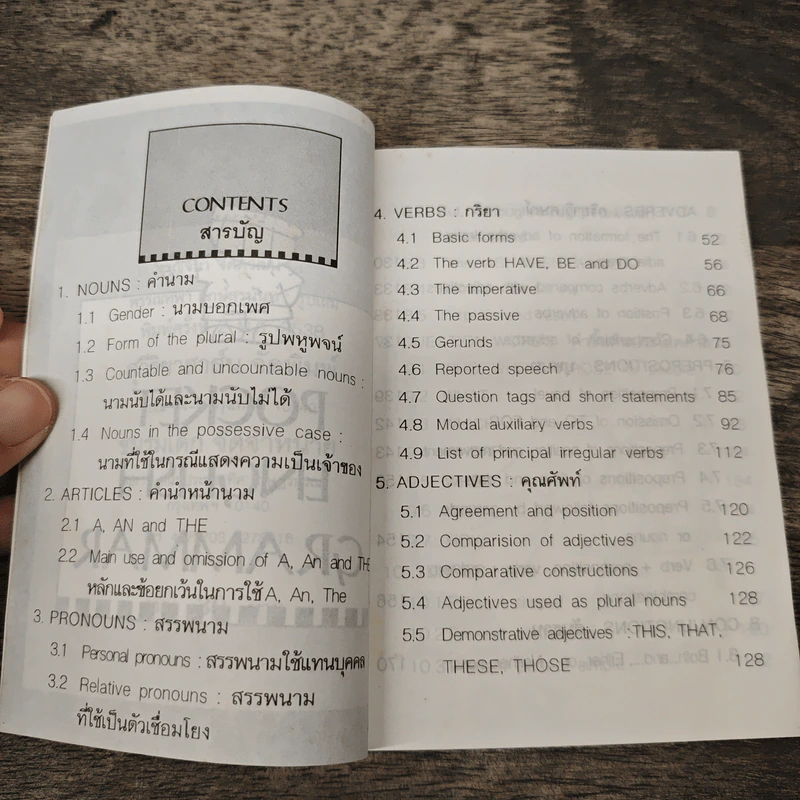 CONTENTS
สารบัญ
1. NOUNS : คำนาม
1.1 Gender : นามบอกเพศ
1.2 Form of the plural : รูปพหูพจน์
1.3 Countable and uncountable nouns :
นามนับได้และนามนับไม่ได้
1.4 Nouns in the possessive case :
นามที่ใช้ในกรณีแสดงความเป็นเจ้าของ
2. ARTICLES : คำนำหน้านาม
2.1 A, AN and THE
2.2 Main use and omission of A, An and THE
หลักและข้อยกเว้นในการใช้ A, An, The
3. PRONOUNS : สรรพนาม
3.1 Personal pronouns : สรรพนามใช้แทนบุคคล
3.2 Relative pronouns : สรรพนาม
ที่ใช้เป็นตัวเชื่อมโยง
4. VERBS : กริยา
4.1 Basic forms 52
4.2 The verb HAVE, BE and DO 56
4.3 The imperative 66
4.4 The passive 68
4.5 Gerunds 75
4.6 Reported speech 76
4.7 Question tags and short statements 85
4.8 Modal auxiliary verbs 92
4.9 List of principal irregular verbs 112
5. ADJECTIVES : คุณศัพท์
5.1 Agreement and position 120
5.2 Comparision of adjectives 122
5.3 Comparative constructions 126
5.4 Adjectives used as plural nouns 128
5.5 Demonstrative adjectives :THIS, THAT,
THESE, THOSE 128